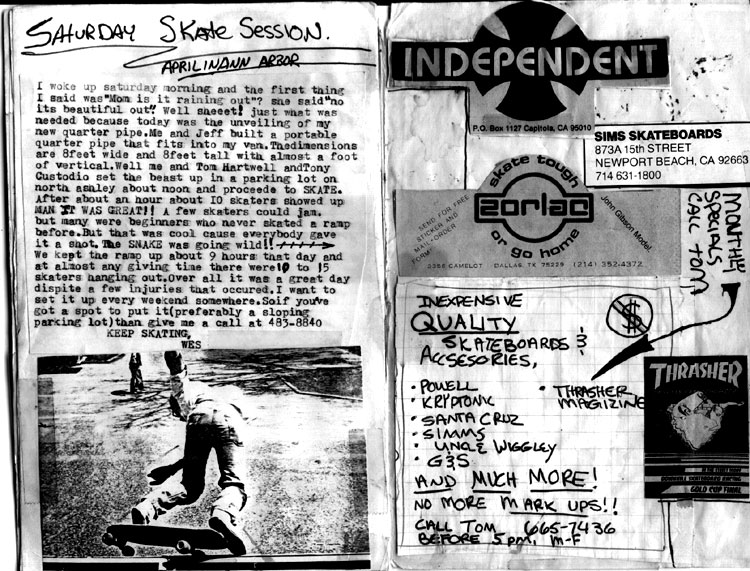 SATURDAY SKate SESSION.
APRIL IN ANN ARBOR
I woke up saturday morning and the first thing
I said was"Mom is it raining out"? she said"no
its beautiful out? Well sheeet! just what was
needed because today was the unveiling of my
new quarter pipe.Me and Jeff built a portable
quarter pipe that fits into my van.Thedimensions
are 8feet wide and 8feet tall with almost a foot
of vertical.Well me and Tom Hartwell andTony
Custodio set the beast up in a parking lot on
north ashley about noon and proceede to SKATE.
After about an hour about IO skaters showed up
MAN IT WAS GREAT!! A few skaters could jam.
but many were beginners who never skated a ramp
before.But that was cool cause everybody gave
it a shot.The SNAKE was going wild!!
We kept the ramp up about 9 hours that day and
at almost any giving time there were10 to 15
skaters hanging out.Over all it was a great day
dispite a few injuries that occured.I want to
set it up every weekend somewhere.Soif you've
got a spot to put it(preferably a sloping
parking lot)than give me a call at 483-8840
KEEP SKATING,
WES
INDEPENDENT
P.O. Box 1127 Capitola, CA 95010
SIMS SKATEBOARDS
873A 15th STREET
NEWPORT BEACH, CA 92663
714 631-1800
skate tough
zorlac
or go home
SEND FOR FREE
STICKER AND
MAIL-ORDER
FORM
John Gibson Model
5356 CAMELOT DALLAS, TX 75229 (214) 352-4372
MONTHLY
SPECIALS
CALL TOM
INEXPENSIVE
QUALITY
SKATEBOARDS &
ACCSESORIES,
$
• POWELL
• KRYPTONIC
• SANTA CRUZ
• SIMMS
• UNCLE WIGGLEY
• G&S
• THRASHER
MAGIZINE
AND MUCH MORE!
NO MORE MARK UPS!!
CALL TOM 665-7436
BEFORE 5 pm, m-F
THRASHER
DOWNHILL SKATEBOARD RACING
GOLD CUP FINAL